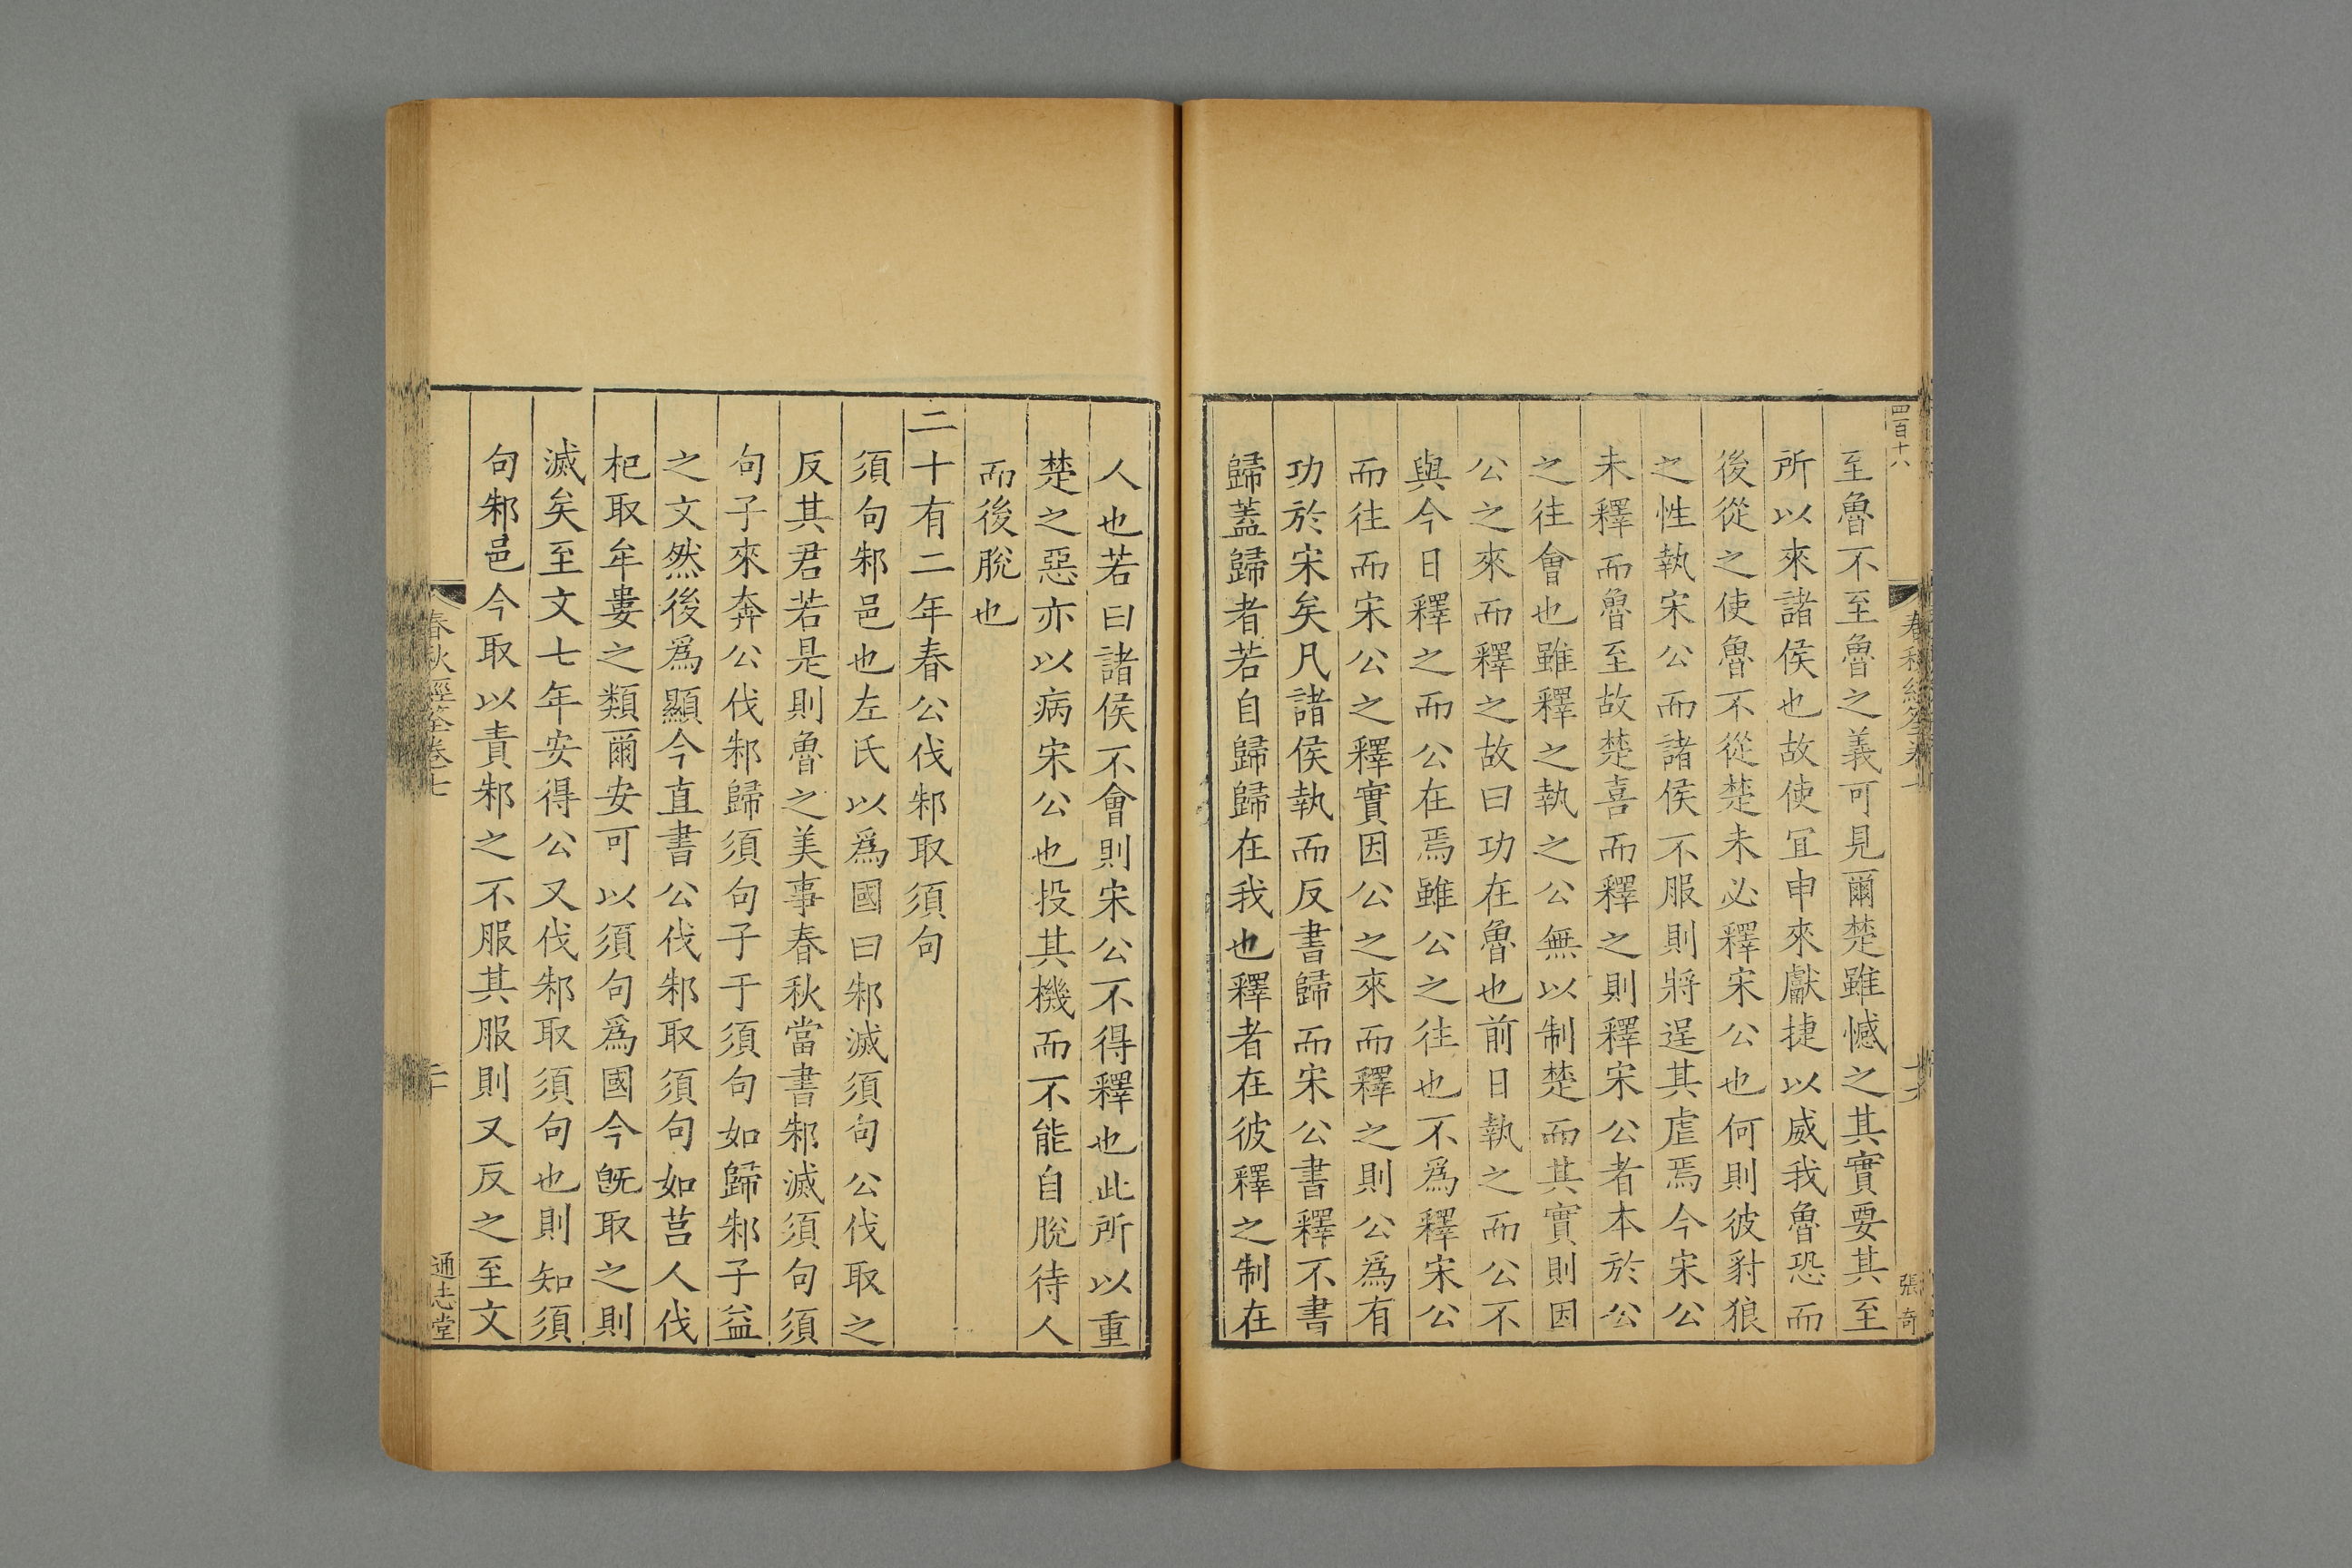 四百十八
春秋經筌卷七
張奇
至魯不至魯之義可見爾楚雖憾之其實要其至
所以來諸侯也故使宜申來獻捷以威我魯恐而
後從之使魯不從楚未必釋宋公也何則彼豺狼
之性執宋公而諸侯不服則將逞其虐焉今宋公
未釋而魯至故楚喜而釋之則釋宋公者本於公
之往會也雖釋之執之公無以制楚而其實則因
公之來而釋之故曰功在魯也前日執之而公不
與今日釋之而公在焉雖公之往也不為釋宋公
而往而宋公之釋實因公之來而釋之則公為有
功於宋矣凡諸侯執而反書歸而宋公書釋不書
歸蓋歸者若自歸歸在我也釋者在彼釋之制在
人也若曰諸侯不會則宋公不得釋也此所以重
楚之惡亦以病宋公也投其機而不能自脫待人
而後脫也
二十有二年春公伐邾取須句
須句邾邑也左氏以為國曰邾滅須句公伐取之
反其君若是則魯之美事春秋當書邾滅須句須
句子來奔公伐邾歸須句子于須句如歸邾子益
之文然後為顯今直書公伐邾取須句如莒人伐
杞取牟婁之類爾安可以須句為國今旣取之則
滅矣至文七年安得公又伐邾取須句也則知須
句邾邑今取以責邾之不服其服則又反之至文
春秋經筌卷七
二十
通志堂